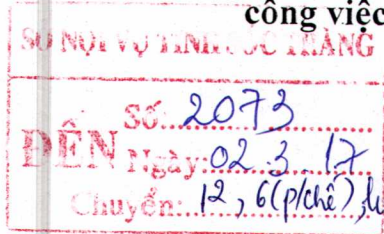 công việc
SỞ NỘI VỤ TỈNH SÓC TRĂNG
ĐẾN
Số: 2073
Ngày: 02.3.17
Chuyển: 12, 6(p/chế),